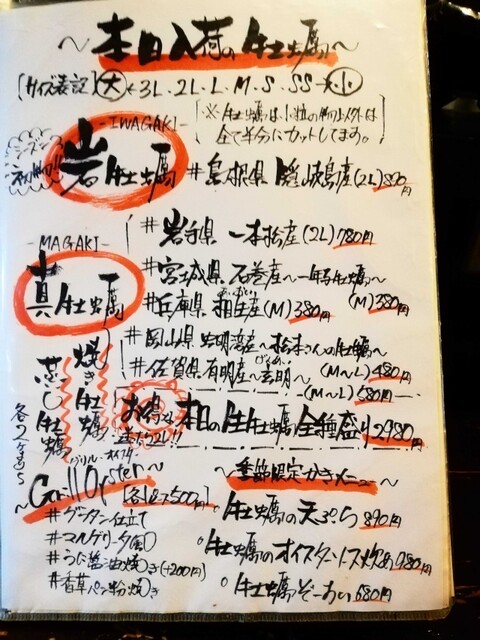 ～本日入荷の牡蠣～
[サイズ表記] 大 ← 3L.2L.L.M.S.SS → 小
※牡蠣は小粒の物以外は
全て半分にカットしてます。
-IWAGAKI-
岩牡蠣
#島根県 隠岐島産(2L) 890円
-MAGAKI-
真牡蠣
#岩手県 一本松産(2L) 780円
#宮城県 石巻産～一年子牡蠣～
(M) 380円
#兵庫県 相生産(M) 380円
#岡山県 虫明湾産～松本さんの牡蠣～
(M～L) 480円
#佐賀県 有明産～玄明～
(M～L) 580円
焼き牡蠣
蒸し牡蠣
各2ケから
お得な 本日の生牡蠣全種盛り 2980円
～Grill Oyster～
グリル・オイスター
[各1ピース500円]
#グラタン仕立て
#マルゲリータ風
#うに醤油焼き(+200円)
#香草パン粉焼き
～季節限定かきメニュー～
○牡蠣の天ぷら 890円
○牡蠣のオイスターソース炒め 980円
○牡蠣ぞーすい 680円